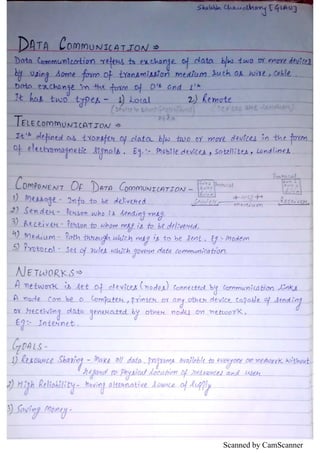 Shalabh Chaudhary [GLAU]
DATA COMMUNICATION ⇒
Data Communication refers to exchange of data b/w two or more devices
by using some form of transmission medium such as wire, cable.
Data exchange in the form of 0's and 1's
It has two types - 1) Local 2) Remote
TELECOMMUNICATION ⇒
It's defined as transfer of data b/w two or more devices in the form
of electromagnetic signals. Eg :- Mobile devices, satellites, landlines.
COMPONENT OF DATA COMMUNICATION -
1) Message - Info to be delivered
2) Sender - Person who is sending msg.
3) Receiver - Person to whom msg is to be delivered.
4) Medium - Path through which msg is to be sent. Eg :- Modem
5) Protocol - Set of rules which govern data communication.
Protocol
Protocol
Sender
Medium
Receiver
NETWORKS ⇒
A network is set of devices (nodes) connected by communication links
A node can be a computer, printer or any other device capable of sending
or receiving data generated by other nodes on network.
Eg :- Internet.
GOALS -
1) Resource Sharing - Make all data, programs available to everyone on network without
regard to physical location of resources and user
2) High Reliability - Having alternative source of supply
3) Saving Money -
Scanned by CamScanner